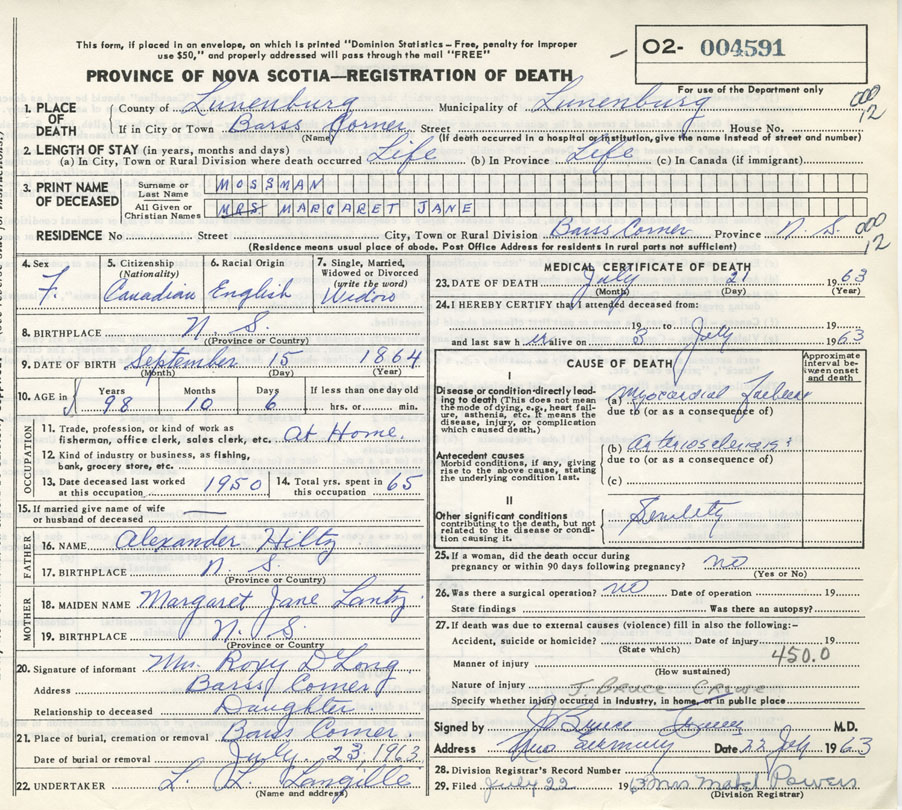 This form, if placed in an envelope, on which is printed "Dominion Statistics – Free, penalty for improper
use $50," and properly addressed will pass through the mail "FREE"
O2- 004591
PROVINCE OF NOVA SCOTIA—REGISTRATION OF DEATH
For use of the Department only
1. PLACE OF DEATH County of Lunenburg Municipality of Lunenburg
000 12
If in City or Town Barss Corner Street House No.
(Name) (If death occurred in a hospital or institution, give the name instead of street and number)
2. LENGTH OF STAY (in years, months and days)
(a) In City, Town or Rural Division where death occurred Life (b) In Province Life (c) In Canada (if immigrant)
3. PRINT NAME OF DECEASED Surname or Last Name MOSSMAN
All Given or Christian Names MRS MARGARET JANE
RESIDENCE No Street City, Town or Rural Division Barss Corner Province N. S. 000 12
(Residence means usual place of abode. Post Office Address for residents in rural parts not sufficient)
4. Sex F.
5. Citizenship (Nationality) Canadian
6. Racial Origin English
7. Single, Married, Widowed or Divorced (write the word) Widow
8. BIRTHPLACE N. S.
(Province or Country)
9. DATE OF BIRTH September 15 1864
(Month) (Day) (Year)
10. AGE in Years 98 Months 10 Days 6 If less than one day old hrs. or min.
OCCUPATION
11. Trade, profession or kind of work as fisherman, office clerk, sales clerk, etc. At Home.
12. Kind of industry or business, as fishing, bank, grocery store, etc.
13. Date deceased last worked at this occupation 1950 14. Total yrs. spent in this occupation 65
15. If married give name of wife or husband of deceased —
FATHER
16. NAME Alexander Hiltz
17. BIRTHPLACE N. S.
(Province or Country)
MOTHER
18. MAIDEN NAME Margaret Jane Lantz
19. BIRTHPLACE N. S
(Province or Country)
20. Signature of informant Mrs. Roxy DeLong
Address Barss Corner
Relationship to deceased Daughter
21. Place of burial, cremation or removal Barss Corner
Date of burial or removal July 23, 1963
22. UNDERTAKER L. L. Langille
(Name and address)
MEDICAL CERTIFICATE OF DEATH
23. DATE OF DEATH July 21 1963
(Month) (Day) (Year)
24. I HEREBY CERTIFY that I attended deceased from:
19 to 19
and last saw h er alive on 3 July 1963
CAUSE OF DEATH
Approximate interval between onset and death
I
Disease or condition directly leading to death (This does not mean the mode of dying, e.g., heart failure, asthenia, etc. It means the disease, injury, or complication which caused death.)
(a) Myocardial Failure
due to (or as a consequence of)
Antecedent causes
Morbid conditions, if any, giving rise to the above cause, stating the underlying condition last.
(b) arteriosclerosis
due to (or as a consequence of)
(c)
II
Other significant conditions contributing to the death, but not related to the disease or condition causing it.
Senility
25. If a woman, did the death occur during pregnancy or within 90 days following pregnancy? no
(Yes or No)
26. Was there a surgical operation? no Date of operation 19
State findings Was there an autopsy?
27. If death was due to external causes (violence) fill in also the following:-
Accident, suicide or homicide? Date of injury 19
(State which)
450.0
Manner of injury
(How sustained)
Nature of injury
J. BRUCE CROWE
Specify whether injury occurred in industry, in home, or in public place
Signed by J Bruce Crowe M.D.
Address New Germany Date 22 July 1963
28. Division Registrar's Record Number
29. Filed July 22 1963 Mrs Mabel Powers
(Division Registrar)